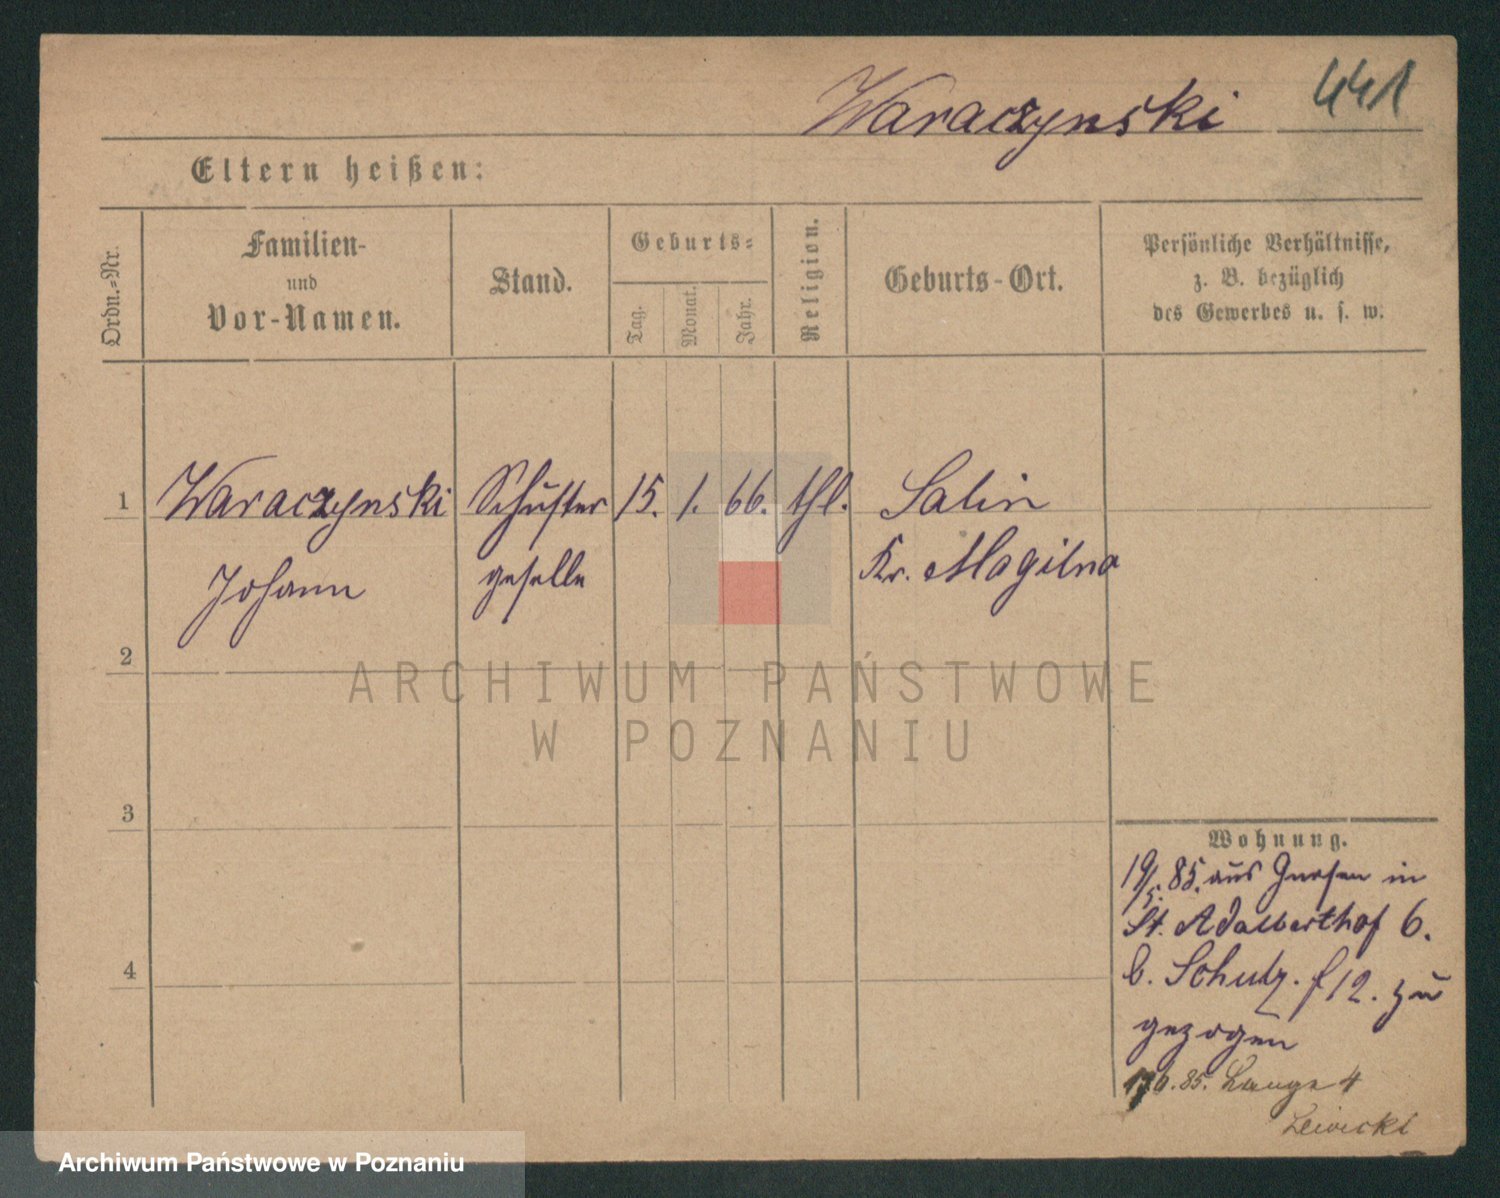 Waraczynski 441
Eltern heißen:
Ordn.=Nr.
Familien-
und
Vor-Namen.
Stand.
Geburts=
Tag.
Monat.
Jahr.
Religion.
Geburts-Ort.
Persönliche Verhältnisse,
z. B. bezüglich
des Gewerbes u. s. w.
1 Waraczynski Schuster 15. 1. 66. kthl. Salin
Johann geselle Kr. Mogilno
2
ARCHIWUM PAŃSTWOWE
W POZNANIU
3
4
Wohnung.
19/5. 85. aus Gnesen in
St. Adalberthof 6.
b. Schulz. f 12. zu
gezogen
17/6. 85. Lange 4
Lewicki
Archiwum Państwowe w Poznaniu